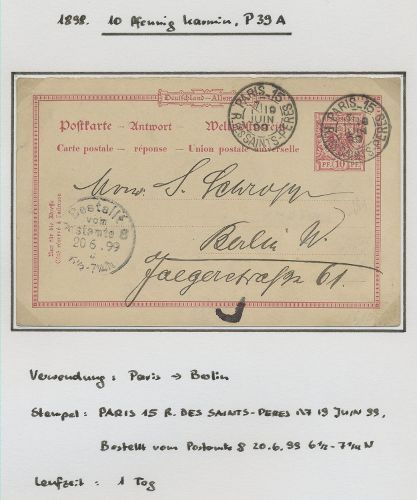 1898. 10 Pfennig karmin, P 39 A
Deutschland - Allemagne
Postkarte - Antwort Weltpostverein
Carte postale - réponse - Union postale universelle
PARIS - 15
19
JUIN
99
R. DES SAINTS-PERES
PARIS - 15
R. DES SAINTS-PERES
PF. 10 PF.
Nur für die Adresse
Mons. S. Schropp
Berlin W.
Jaegerstraße 61.
Bestellt
vom
Postamte 8
20.6.99
6½-7¼N
Verwendung: Paris → Berlin
Stempel: PARIS 15 R. DES SAINTS-PERES 19 JUIN 99,
Bestellt vom Postamte 8 20.6.99 6½-7¼ N
Laufzeit: 1 Tag